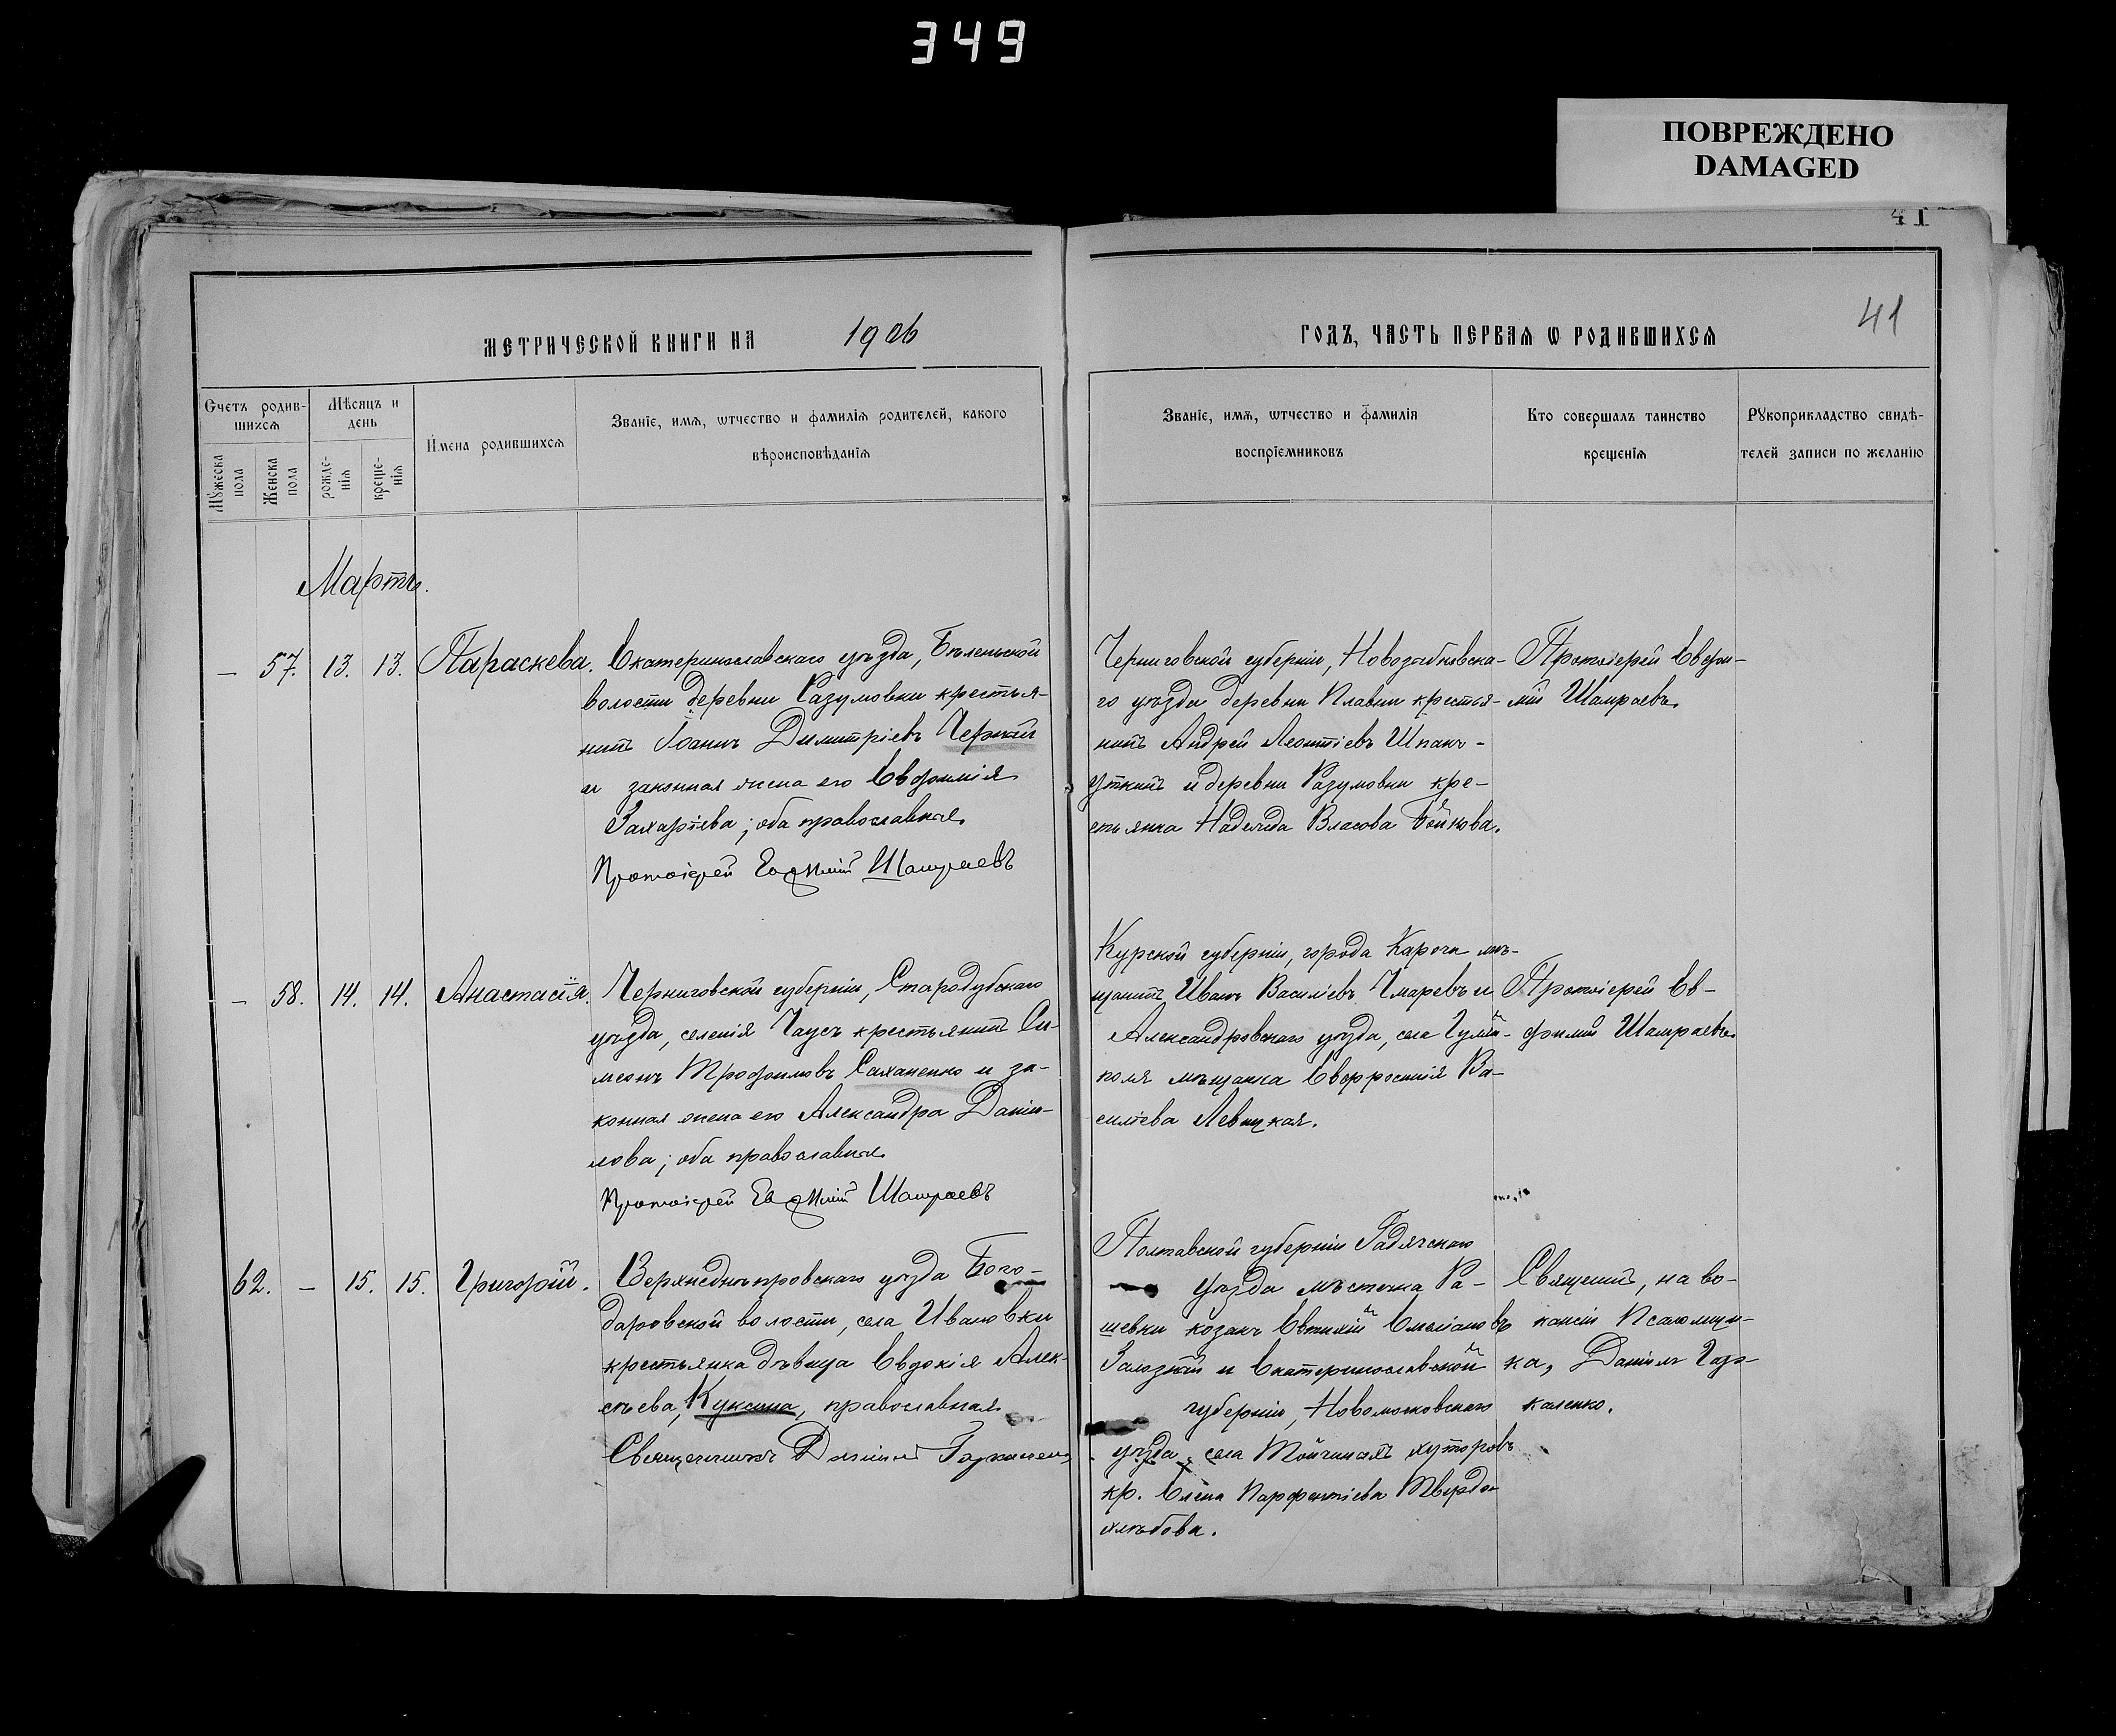 349
ПОВРЕЖДЕНО
DAMAGED
41
41
МЕТРИЧЕСКОЙ КНИГИ НА 1906
ГОДЪ, ЧАСТЬ ПЕРВАѦ Ѡ РОДИВШИХСѦ
Счетъ родив-
шихсѧ
Мꙋжеска
пола
Женска
пола
Мѣсяцъ и
день
рожде-
нїѧ
креще-
нїѧ
Имена родившихсѧ
Званїе, имѧ, ѡтчество и фамилїѧ родителей, какого
вѣроисповѣданїѧ
Званїе, имѧ, ѡтчество и фамилїѧ
воспрїемниковъ
Кто совершалъ таинство
крещенїѧ
Рꙋкоприкладство свидѣ-
телей записи по желанїю
Мартъ.
— 57. 13. 13. Параскева.
Екатеринославскаго уѣзда, Бѣленьской
волости деревни Разумовки крестья-
нинъ Іоаннъ Димитріевъ Черный
и законная жена его Евфимія
Захаріева; оба православные.
Протоіерей Евфимій Шамраевъ
Черниговской губерніи, Новозыбковска-
го уѣзда деревни Плавни крестья-
нинъ Андрей Леонтіевъ
и деревни Разумовки кре-
стьянка Надежда Власова Бойкова.
Протоіерей Евфи-
мій Шамраевъ.
— 58. 14. 14. Анастасія.
Черниговской губерніи, Стародубскаго
уѣзда, селенія Чаусъ крестьянинъ Си-
меонъ Трофимовъ Саханенко и за-
конная жена его Александра Дании-
лова; оба православные.
Протоіерей Евфимій Шамраевъ
Курской губерніи, города Карочи мѣ-
щанинъ Иванъ Василіевъ Чмаревъ и
Александровскаго уѣзда, села Гуляй-
поля мѣщанка Евфросинія Ва-
силіева Левицкая.
Протоіерей Ев-
фимій Шамраевъ.
62. — 15. 15. Григорій.
Верхнеднѣпровскаго уѣзда Бого-
даровской волости, села Ивановки
крестьянка дѣвица Евдокія Алек-
сѣева, Куксина, православная
Священникъ Даніилъ
Полтавской губерніи Гадячскаго
уѣзда мѣстечка Ра-
шевки козакъ Евтихій Емеліановъ
Залозный и Екатеринославской
губерніи, Новомосковскаго
уѣзда, села хуторовъ
кр. Елена Парфентіева Твердо-
хлѣбова.
Священникъ, на ва-
кансіи Псаломщи-
ка, Даніилъ Гор-
каленко.